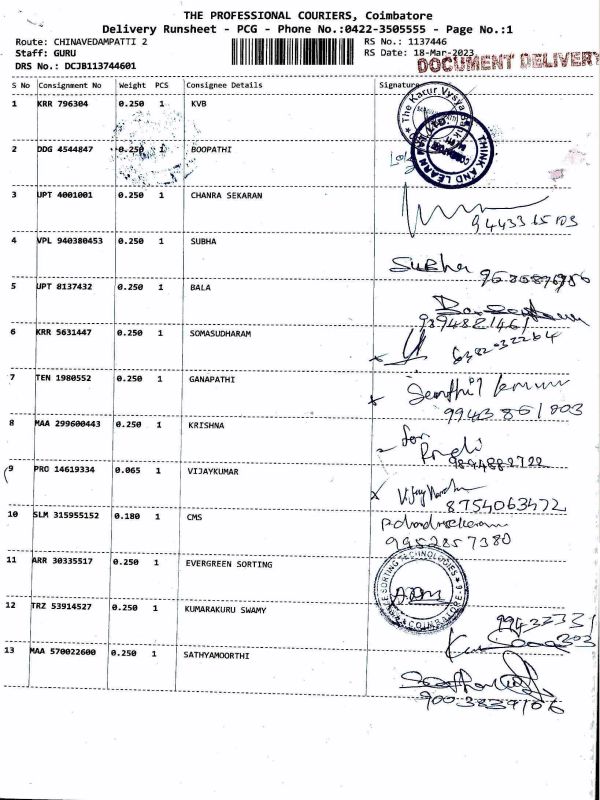 THE PROFESSIONAL COURIERS, Coimbatore
Delivery Runsheet - PCG - Phone No.:0422-3505555 - Page No.:1
Route: CHINAVEDAMPATTI 2 RS No.: 1137446
Staff: GURU RS Date: 18-Mar-2023
DOCUMENT DELIVERY
DRS No.: DCJB113744601
S No Consignment No Weight PCS Consignee Details Signature
1 KRR 796304 0.250 1 KVB
The Karur Vysya
2 DDG 4544847 0.250 1 BOOPATHI
THINK AND LEARN
3 UPT 4001001 0.250 1 CHANRA SEKARAN
4 VPL 940380453 0.250 1 SUBHA
Subha
5 UPT 8137432 0.250 1 BALA
9894821461
6 KRR 5631447 0.250 1 SOMASUDHARAM
6382032264
7 TEN 1980552 0.250 1 GANAPATHI
Senthil kumar
9943861003
8 MAA 299600443 0.250 1 KRISHNA
for
9894882722
9 PRO 14619334 0.065 1 VIJAYKUMAR
8754063472
10 SLM 315955152 0.180 1 CMS
9952857380
11 ARR 30335517 0.250 1 EVERGREEN SORTING
SORTING TECHNOLOGIES
COIMBATORE-6
12 TRZ 53914527 0.250 1 KUMARAKURU SWAMY
99432331
203
13 MAA 570022600 0.250 1 SATHYAMOORTHI
9003839106